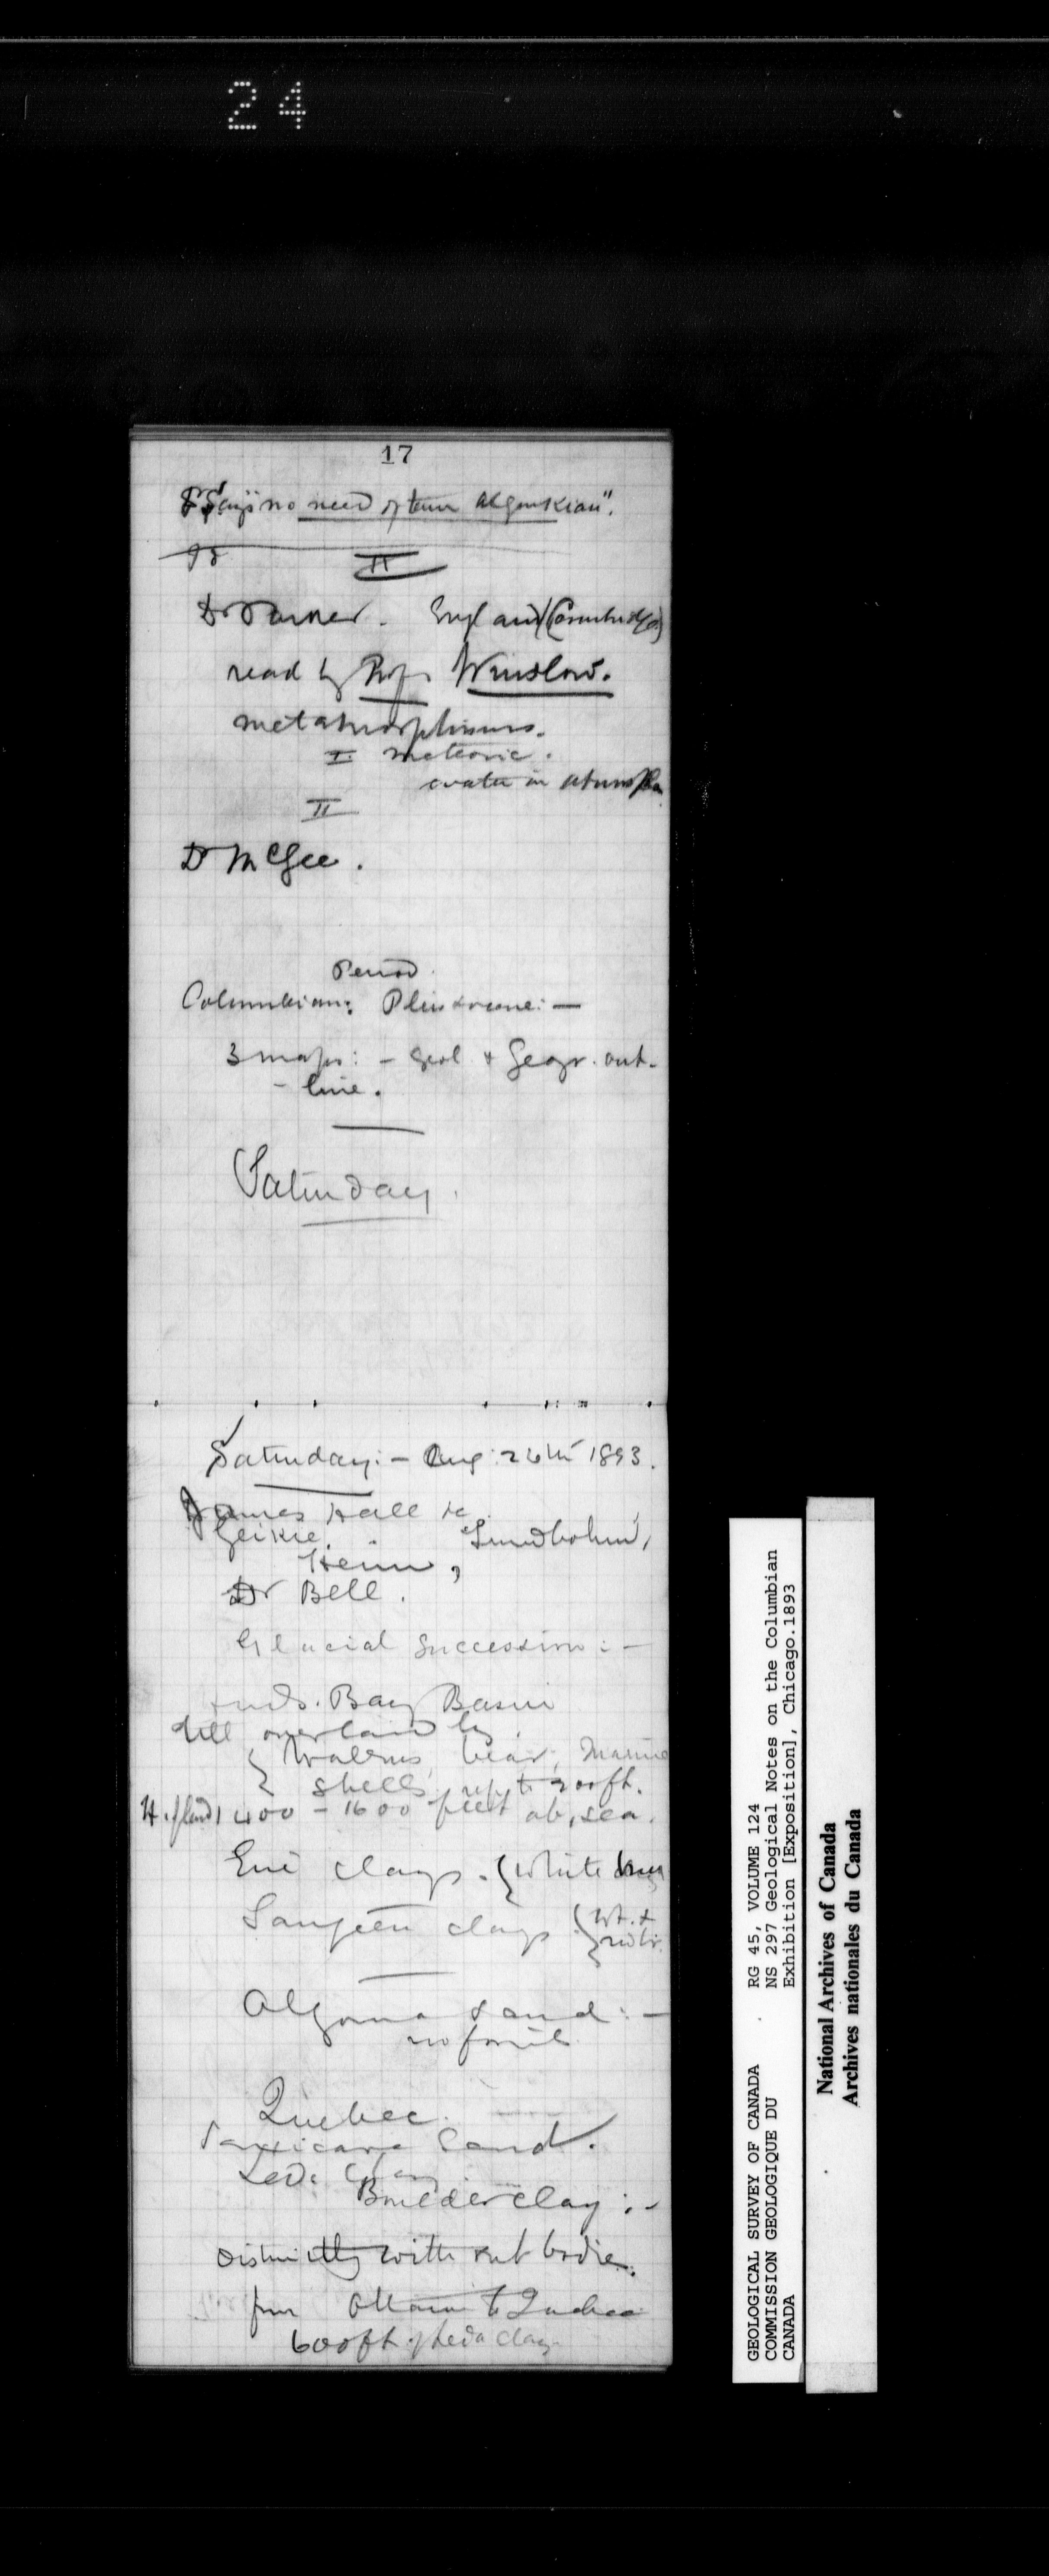 24
17
Says "no need of term Algonkian".
II
Dr England (Cambridge)
read by Prof. Winslow.
metamorphisms.
I. meteoric.
water in
II
Dr McGee.
Period
Columbian: Pleistocene: —
3 maps: - Geol & Geogr. out-
- line.
Saturday.
Saturday: — Aug: 26th 1893.
James Hall
Geikie,
Heim,
Dr Bell.
Glacial Succession: —
Huds. Bay Basin
till overlain by
Walrus, bear, Marine
shells, up to 200 ft.
1400 - 1600 feet ab, sea.
Erie clays. { White
Saugeen clays {
Algoma sand: —
no fossils
Quebec.
Saxicava Sand.
Leda Clay
Boulder clay: -
Distinctly with out
from Ottawa to Quebec
600 ft of Leda Clay
GEOLOGICAL SURVEY OF CANADA RG 45, VOLUME 124
COMMISSION GEOLOGIQUE DU NS 297 Geological Notes on the Columbian
CANADA Exhibition [Exposition], Chicago.1893
National Archives of Canada
Archives nationales du Canada